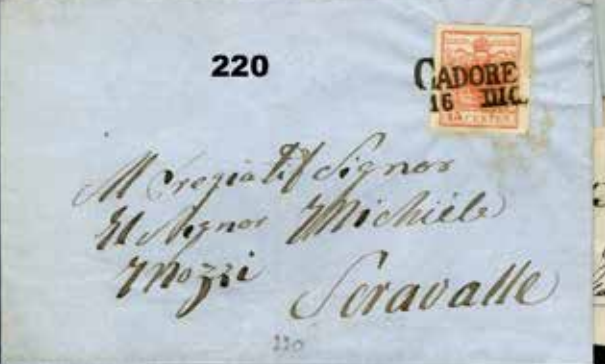 220
CADORE
16 DIC.
15 CENTES
Al Pregiatis/ Signor
Il Signor Michiele
Mozzi
Seravalle
220